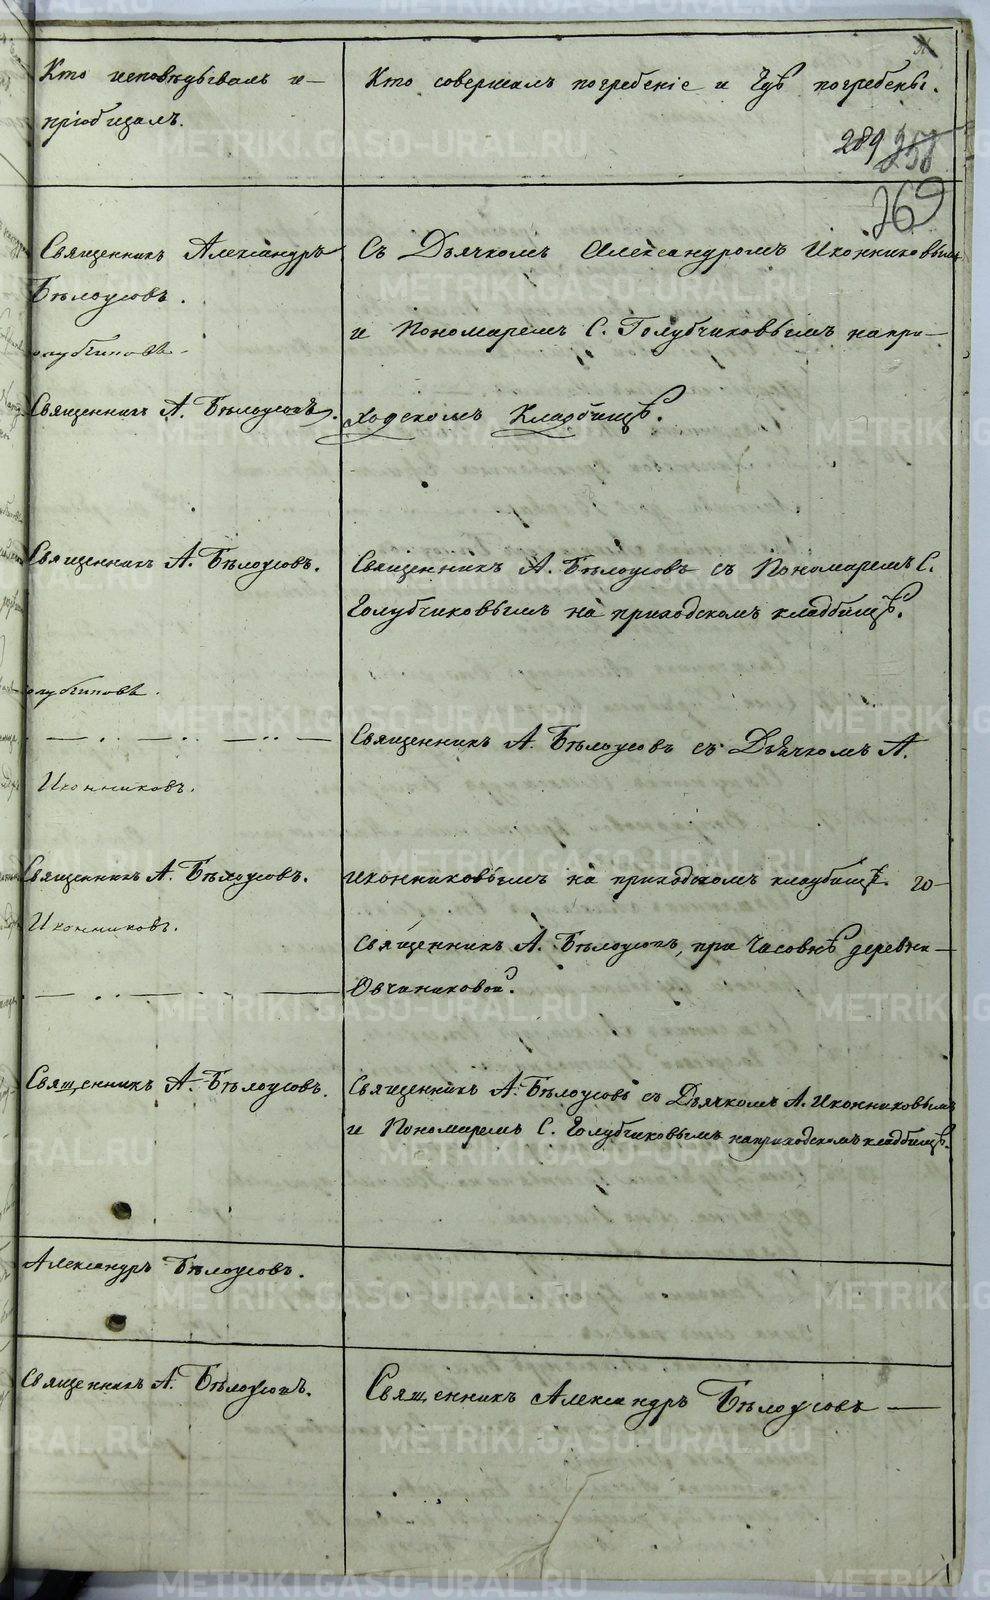 Кто исповѣдывалъ и
пріобщалъ.
Кто совершалъ погребеніе и гдѣ погребены.
289 258
269
Священникъ Александръ
Бѣлоусовъ.
Священникъ А. Бѣлоусовъ.
Священникъ А. Бѣлоусовъ.
Иконниковъ.
Священникъ А. Бѣлоусовъ.
Иконниковъ.
Священникъ А. Бѣлоусовъ.
Александръ Бѣлоусовъ.
Священникъ А. Бѣлоусовъ.
Съ Дьячкомъ Александромъ Иконниковымъ
и Пономаремъ С. Голубчиковымъ на при-
ходскомъ кладбищѣ.
Священникъ А. Бѣлоусовъ съ Пономаремъ С.
Голубчиковымъ на приходскомъ кладбищѣ.
Священникъ А. Бѣлоусовъ съ Дьячкомъ А.
Иконниковымъ на приходскомъ кладбищѣ.
Священникъ А. Бѣлоусовъ, при часовнѣ деревни
Овчиниковой.
Священникъ А. Бѣлоусовъ съ Дьячкомъ А. Иконниковымъ
и Пономаремъ С. Голубчиковымъ на приходскомъ кладбищѣ.
Священникъ Александръ Бѣлоусовъ
METRIKI.GASO-URAL.RU